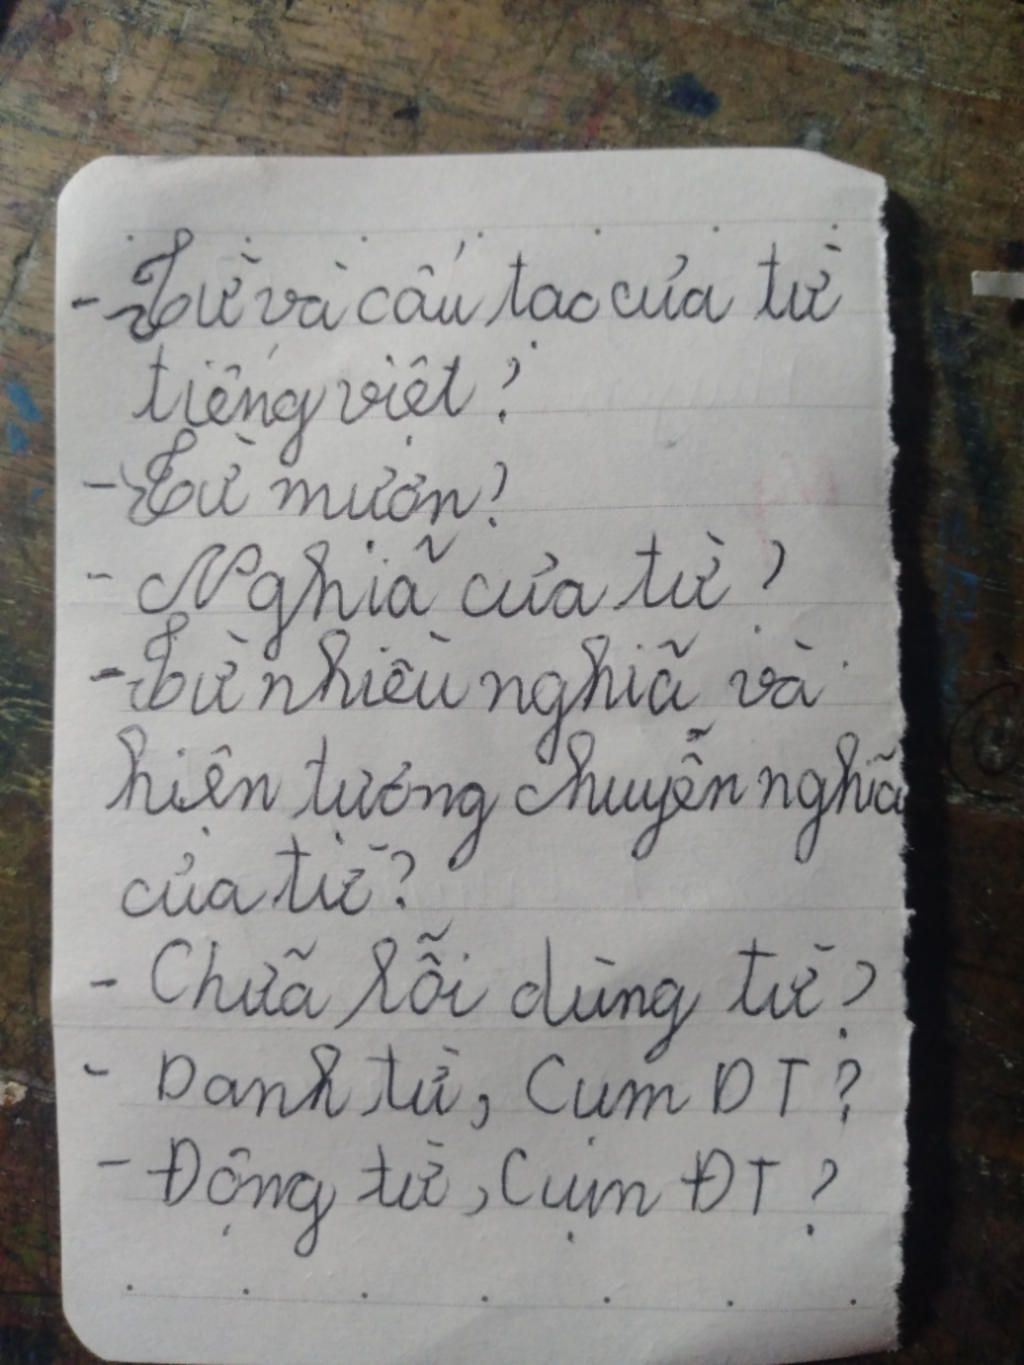 - Từ và cấu tạo của từ
tiếng việt?
- Từ mượn?
- Nghĩa của từ?
- Từ nhiều nghĩa và
hiện tượng chuyển nghĩa
của từ?
- Chữa lỗi dùng từ?
- Danh từ, Cụm DT?
- Động từ, Cụm ĐT?